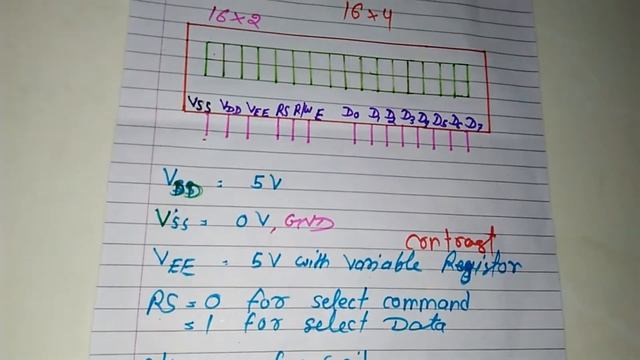 16×2 16×4
VSS VDD VEE RS R/W E D0 D1 D2 D3 D4 D5 D6 D7
VDD = 5V
VSS = 0V, GND
contrast
VEE = 5V with variable Registor
RS = 0 for select command
= 1 for select Data